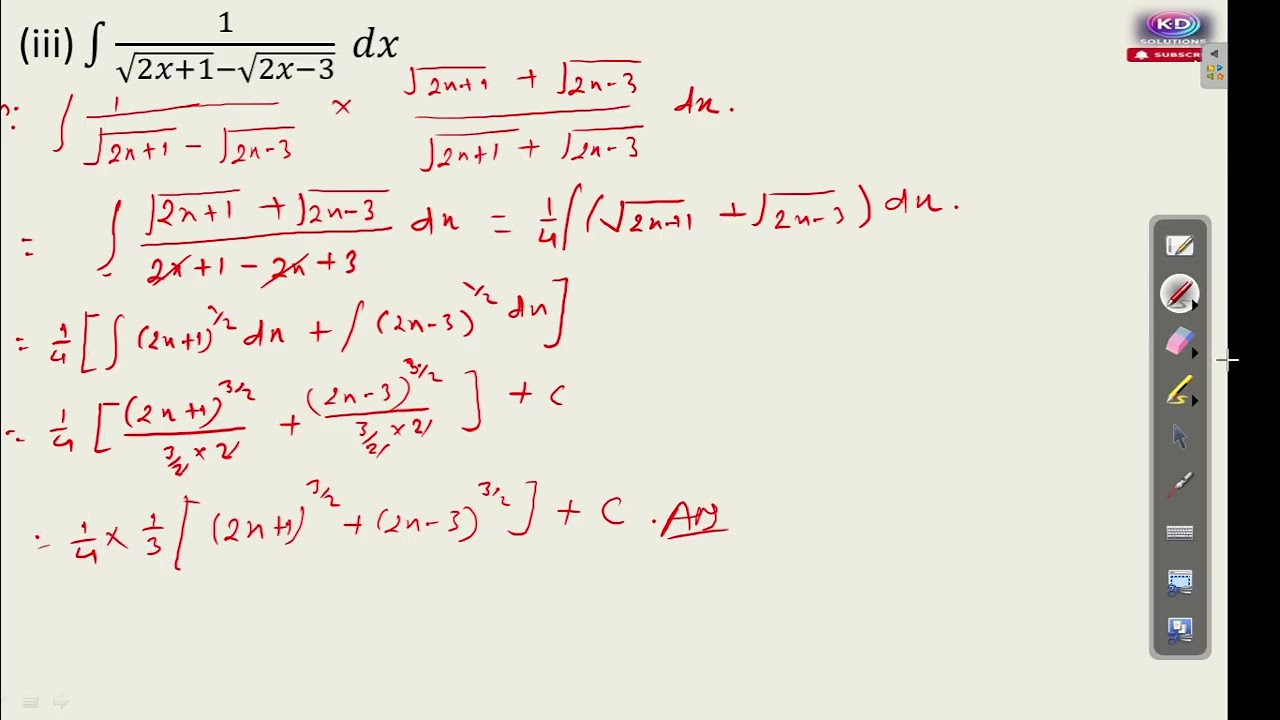 (iii) ∫ 1/(√(2x+1)−√(2x−3)) dx
K-D
SOLUTIONS
SUBSCR
∫ 1/(√(2x+1) − √(2x−3)) × (√(2x+1) + √(2x−3))/(√(2x+1) + √(2x−3)) dx.
= ∫ (√(2x+1) + √(2x−3))/(2x+1−2x+3) dx = 1/4 ∫(√(2x+1) + √(2x−3)) dx.
= 1/4 [∫ (2x+1)^1/2 dx + ∫ (2x−3)^1/2 dx]
= 1/4 [(2x+1)^3/2/(3/2 × 2) + (2x−3)^3/2/(3/2 × 2)] + C
= 1/4 × 1/3 [(2x+1)^3/2 + (2x−3)^3/2] + C. Ans